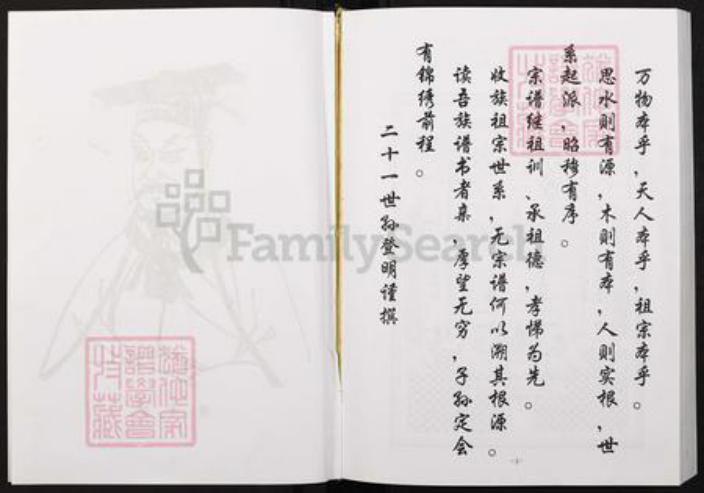 万物本乎，天人本乎，祖宗本乎。
思水则有源，木则有本，人则实根，世
系起派，昭穆有序。
宗谱继祖训、承祖德，孝悌为先。
收族祖宗世系，无宗谱何以溯其根源。
读吾族谱书者亲，厚望无穷，子孙定会
有锦绣前程。
二十一世孙登明谨撰
FamilySearch